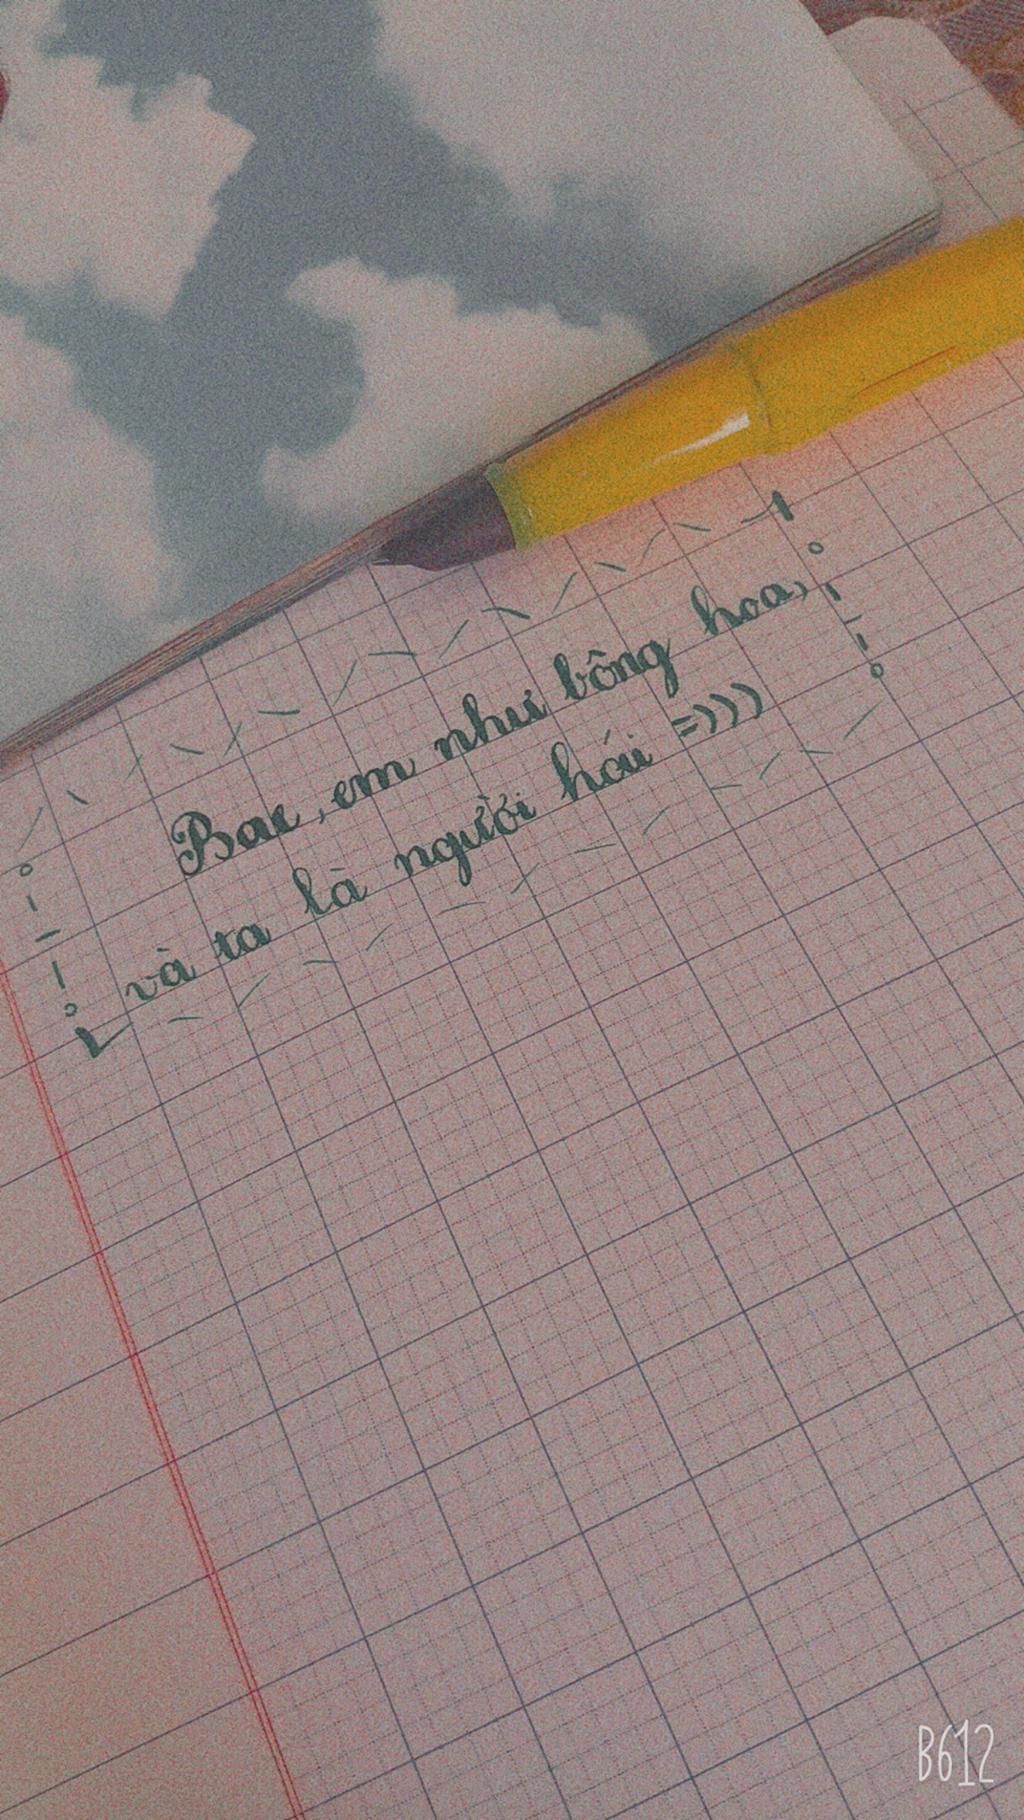 Bae, em như bông hoa,
và ta là người hái =)))
B612